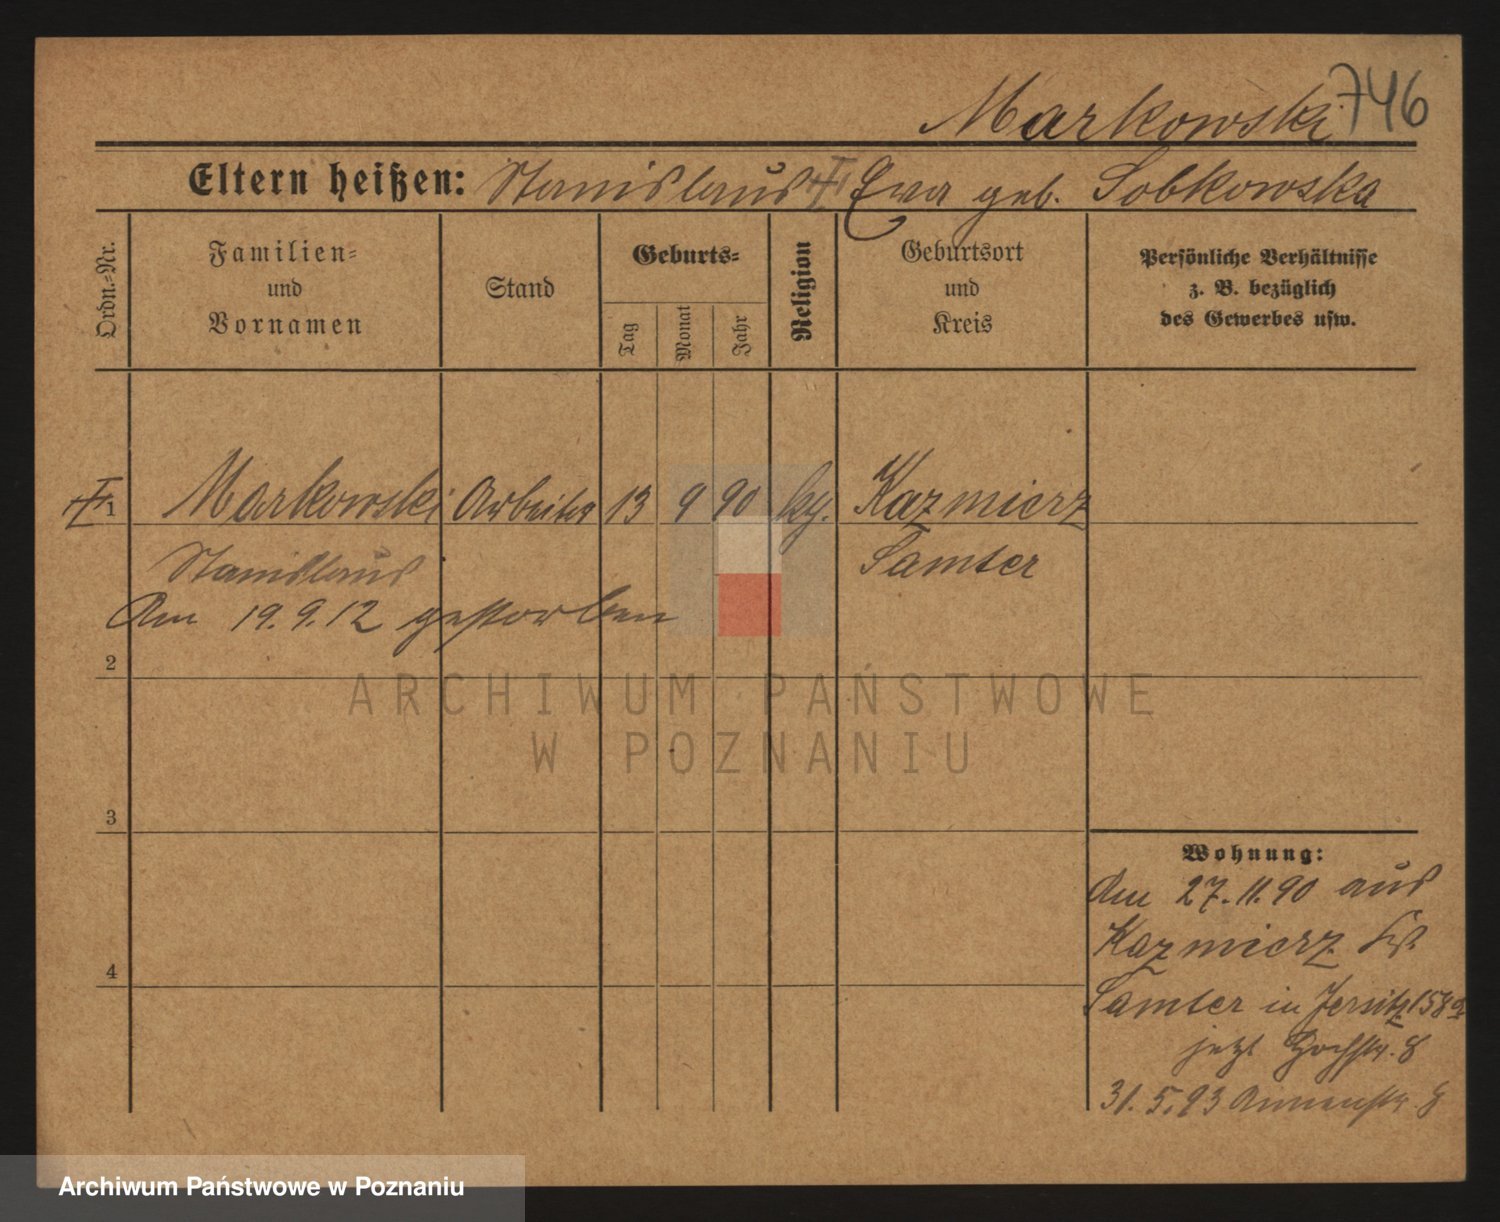 Markowski 746
Eltern heißen: Stanislaus Ewa geb. Sobkowska
Ordn.-Nr.
Familien-
und
Vornamen
Stand
Geburts-
Tag
Monat
Jahr
Religion
Geburtsort
und
Kreis
Persönliche Verhältnisse
z. B. bezüglich
des Gewerbes usw.
1 Markowski Arbeiter 13 9 90 kg. Kazmierz
Stanislaus Samter
Am 19.9.12 gestorben
2
3
4
Wohnung:
Am 27.11.90 aus
Kazmierz
Samter in Jersitz 158a
jetzt Hochstr. 8
31.5.93 Annenstr. 8
ARCHIWUM PAŃSTWOWE
W POZNANIU
Archiwum Państwowe w Poznaniu